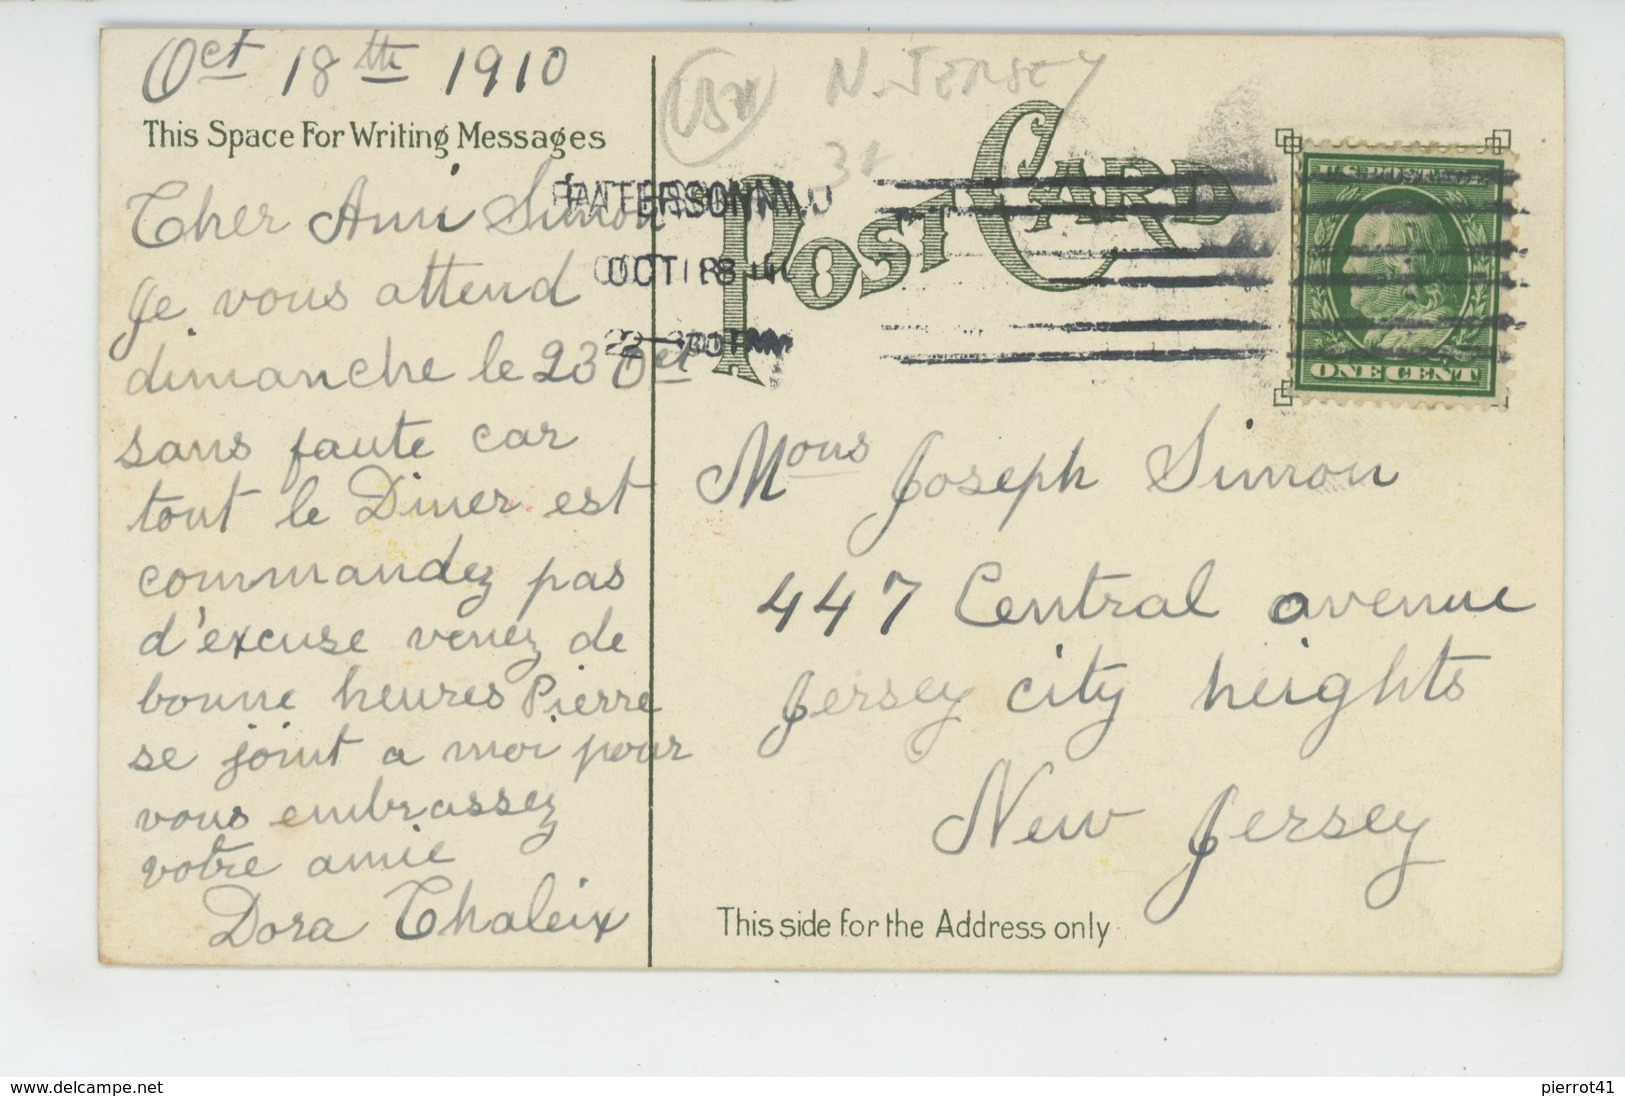 Oct 18th 1910
This Space For Writing Messages
Cher Ami Simon
Je vous attend
dimanche le 23 Oct
sans faute car
tout le Diner est
commandez pas
d'excuse venez de
bonne heures Pierre
se joint a moi pour
vous embrassez
votre amie
Dora Thaleix
USA
N. JERSEY
PATERSON N.J.
OCT 18
POST CARD
U.S. POSTAGE
ONE CENT
Mous Joseph Simon
447 Central avenue
Jersey city heights
New Jersey
This side for the Address only
www.delcampe.net
pierrot41